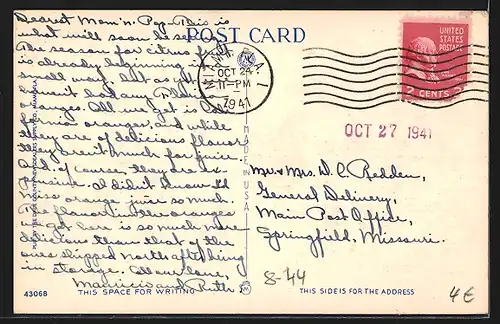 Dearest Mom 'n Pop - This is
what will soon be seen.
The season for citrus fruit
is already beginning in a
small way but as yet
oranges. All we get is Cali-
fornia oranges, and while
they are of delicious flavor
they aren't much for juice.
And of course, they are ex-
pensive. I didn't know I'd
miss orange juice so much.
The flavor in the oranges
we get here is so much more
delicious than that of the
ones shipped north after being
in storage. All our love,
Mauricio and Ruth
43068
THIS SPACE FOR WRITING
POST CARD
MADE IN U.S.A.
MIAMI
OCT 24
11-PM
1941
UNITED
STATES
POSTAGE
2 CENTS 2
OCT 27 1941
Mr. & Mrs. D. C. Redden,
General Delivery,
Main Post Office,
Springfield, Missouri.
8-44
4€
THIS SIDE IS FOR THE ADDRESS